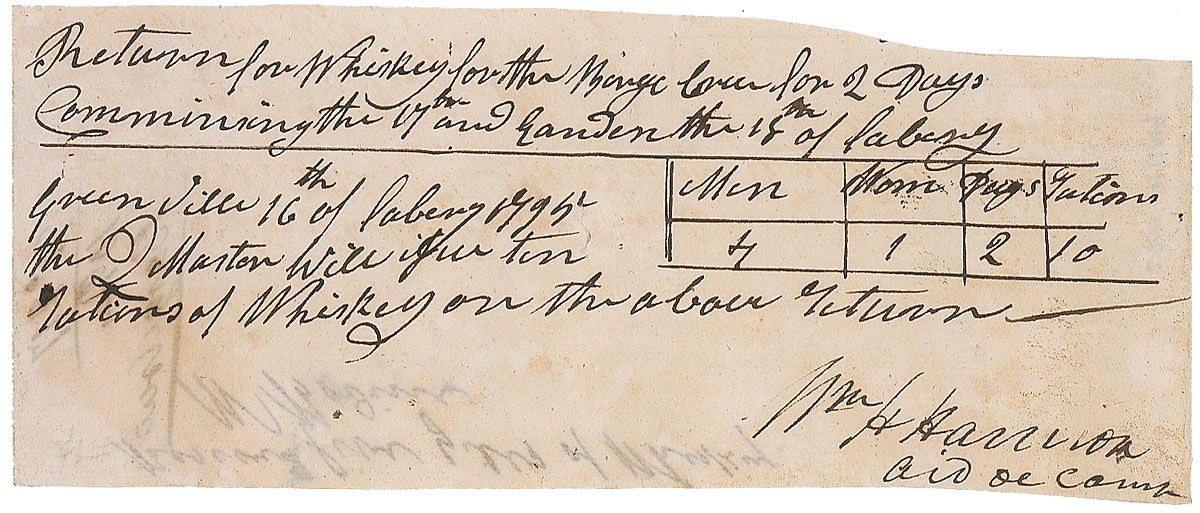 Return for Whiskey for the Barge Crue for 2 Days
Comminsing the 17th and Eanden the 18th of Fabery
Green Ville 16th of Fabery 1795
the Q Master Will isue ten
rations of Whiskey on the aboue return
Men Wom Days rations
4 1 2 10
Wm H Harrison
aid de camp